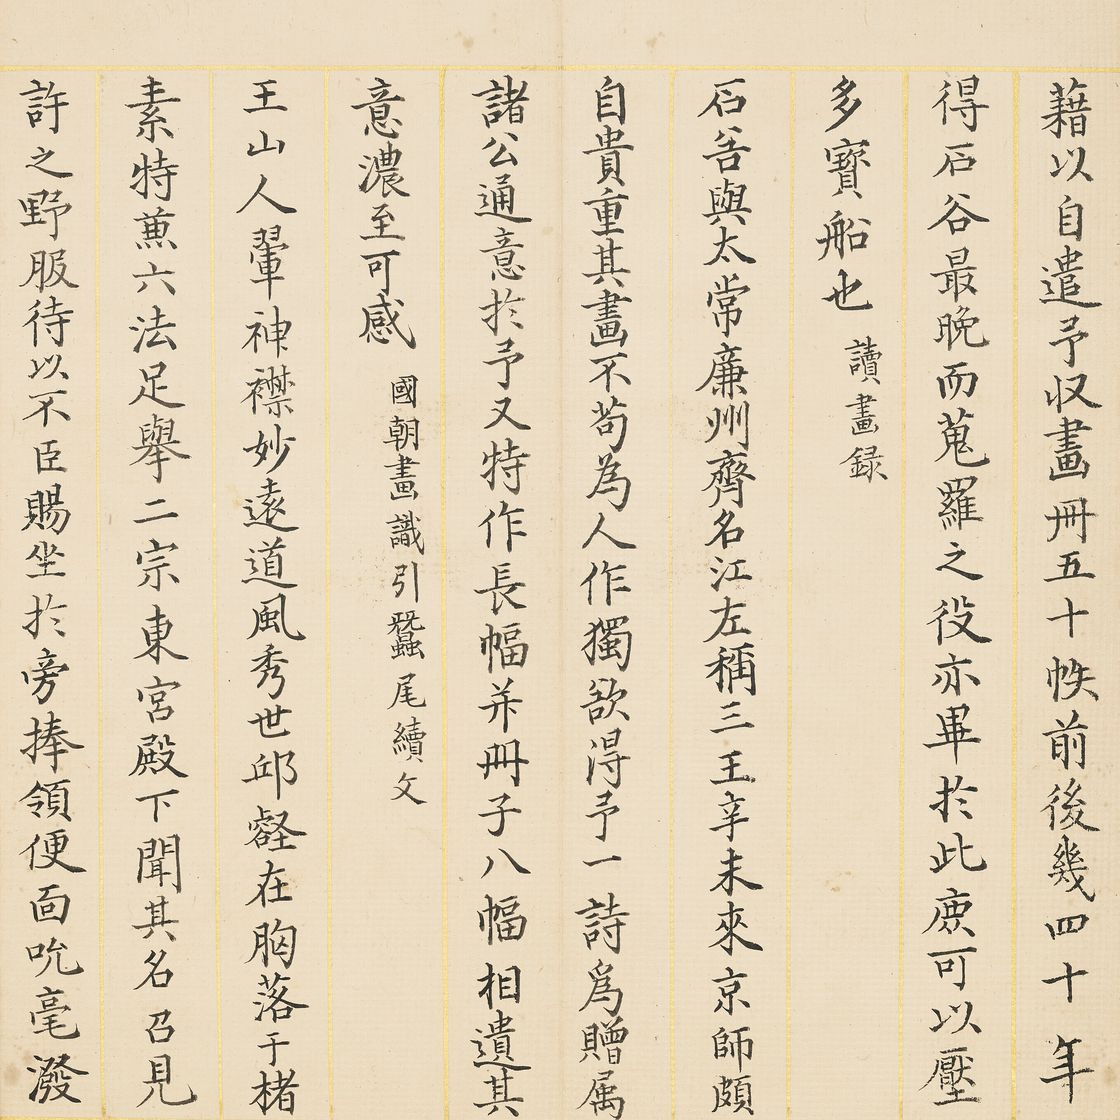 藉以自遣予収畫冊五十帙前後幾四十年
得石谷最晚而蒐羅之役亦畢於此庶可以壓
多寶船也 讀畫録
石谷與太常廉州齊名江左稱三王辛未來京師頗
自貴重其畫不苟為人作獨欲得予一詩為贈属
諸公通意於予又特作長幅并冊子八幅相遺其
意濃至可感 國朝畫識引蠶尾續文
王山人翬神襟妙遠道風秀世邱壑在胸落于楮
素特兼六法足舉二宗東宮殿下聞其名召見
許之野服待以不臣賜坐於旁捧領便面吮毫潑